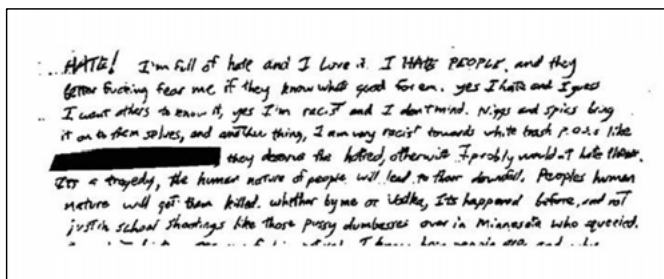 HATE! I'm full of hate and I love it. I HATE PEOPLE. and they
better fucking fear me if they know whats good for em. yes I hate and I guess
I want others to know it, yes I'm racist and I don't mind. Niggs and spics bring
it on to them selves, and another thing, I am very racist towards white trash p.o.s.s like
they deserve the hatred, otherwise I probly would-t hate them.
Its a tragedy, the human nature of people will lead to their downfall. Peoples human
nature will get them killed. whether by me or Vodka, Its happened before, and not
just in school shootings like those pussy dumbasses over in Minnesota who squeeled.